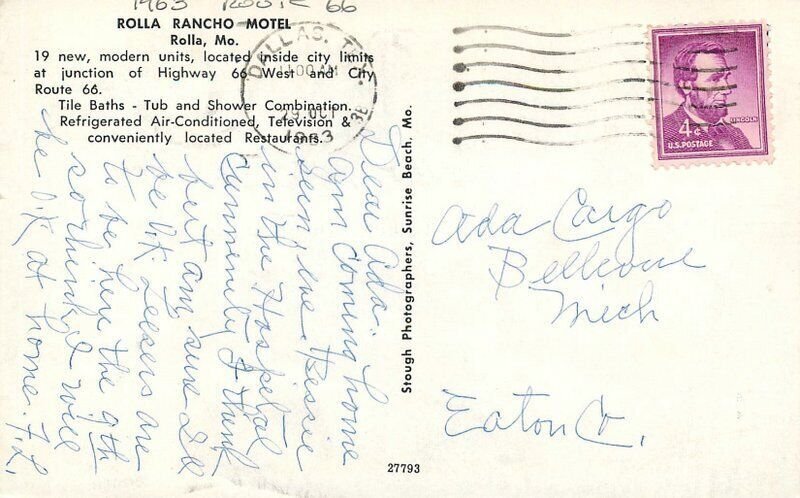 1963 ROUTE 66
ROLLA RANCHO MOTEL
Rolla, Mo.
19 new, modern units, located inside city limits
at junction of Highway 66 West and City
Route 66.
Tile Baths - Tub and Shower Combination.
Refrigerated Air-Conditioned, Television &
conveniently located Restaurants.
DALLAS, TEX.
OCT
1963
LINCOLN
4¢
U.S. POSTAGE
Dear Ada.
Am coming home
Bessie
in the Hospital
I think
but am sure I'll
be O.K.
to be here the 9th
so think I will
be O.K at home. F.L.
Stough Photographers, Sunrise Beach, Mo.
Ada Cargo
Bellevue
Mich
Eaton Co.
27793